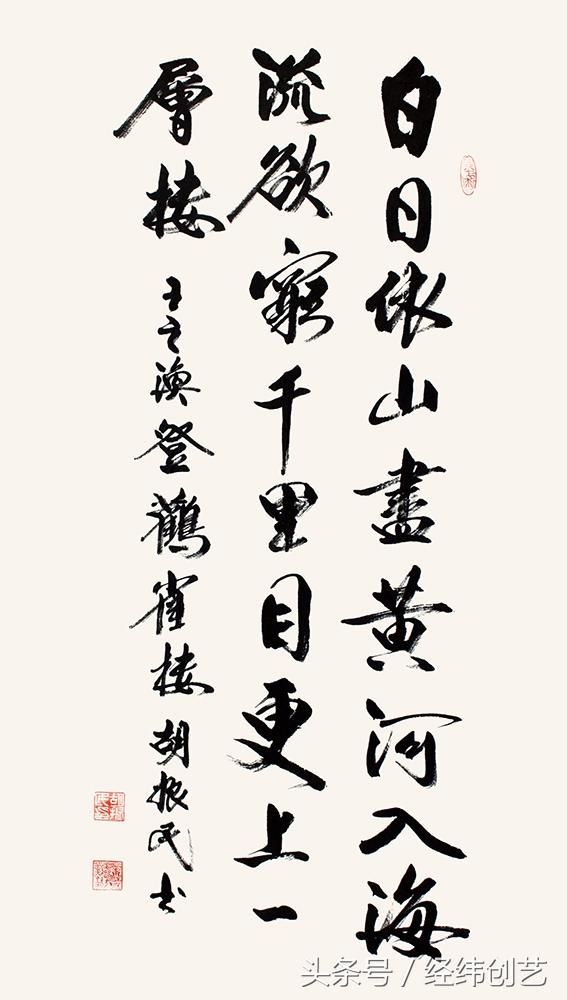 白日依山盡黄河入海
流欲窮千里目更上一
層楼
王之渙登鸛雀楼胡振民书
头条号/经纬创艺